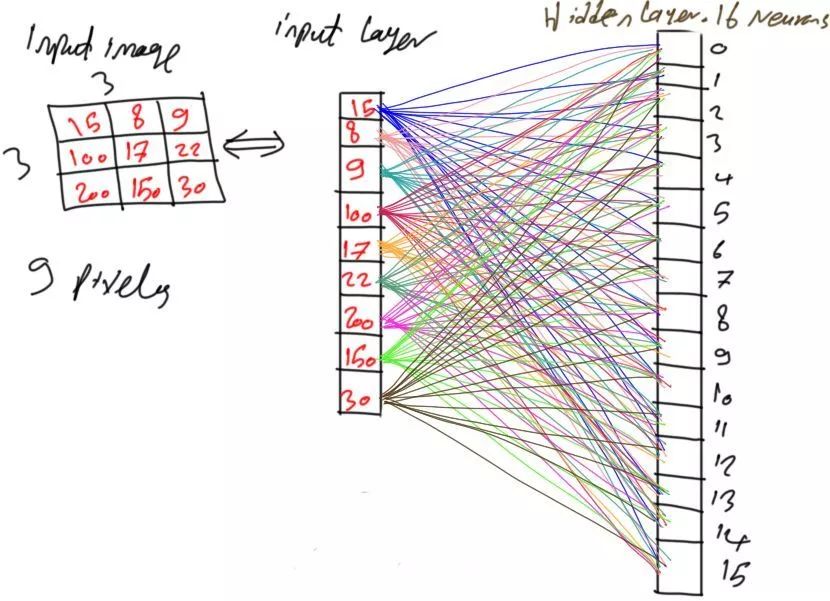 Input image
3
3
15 8 9
100 17 22
200 150 30
9 pixels
input layer
15
8
9
100
17
22
200
150
30
Hidden layer. 16 neurons
0
1
2
3
4
5
6
7
8
9
10
11
12
13
14
15